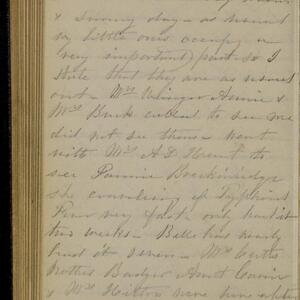 & Sunny day - as usual
my little ones occupy a
very important part so I
State that they are as usual
out - Mrs Winger Annie &
Mrs Buck called to see me
did not see them - went
with Mrs A D Hunt to
see Fannie Breckinridge
she convalescing of Typhoid
Fever very fast only had it
two weeks - Belle has nearly
had it seven - Mrs Curtis
Mattie Badger Aunt Carrie
& Mrs Hilton were here